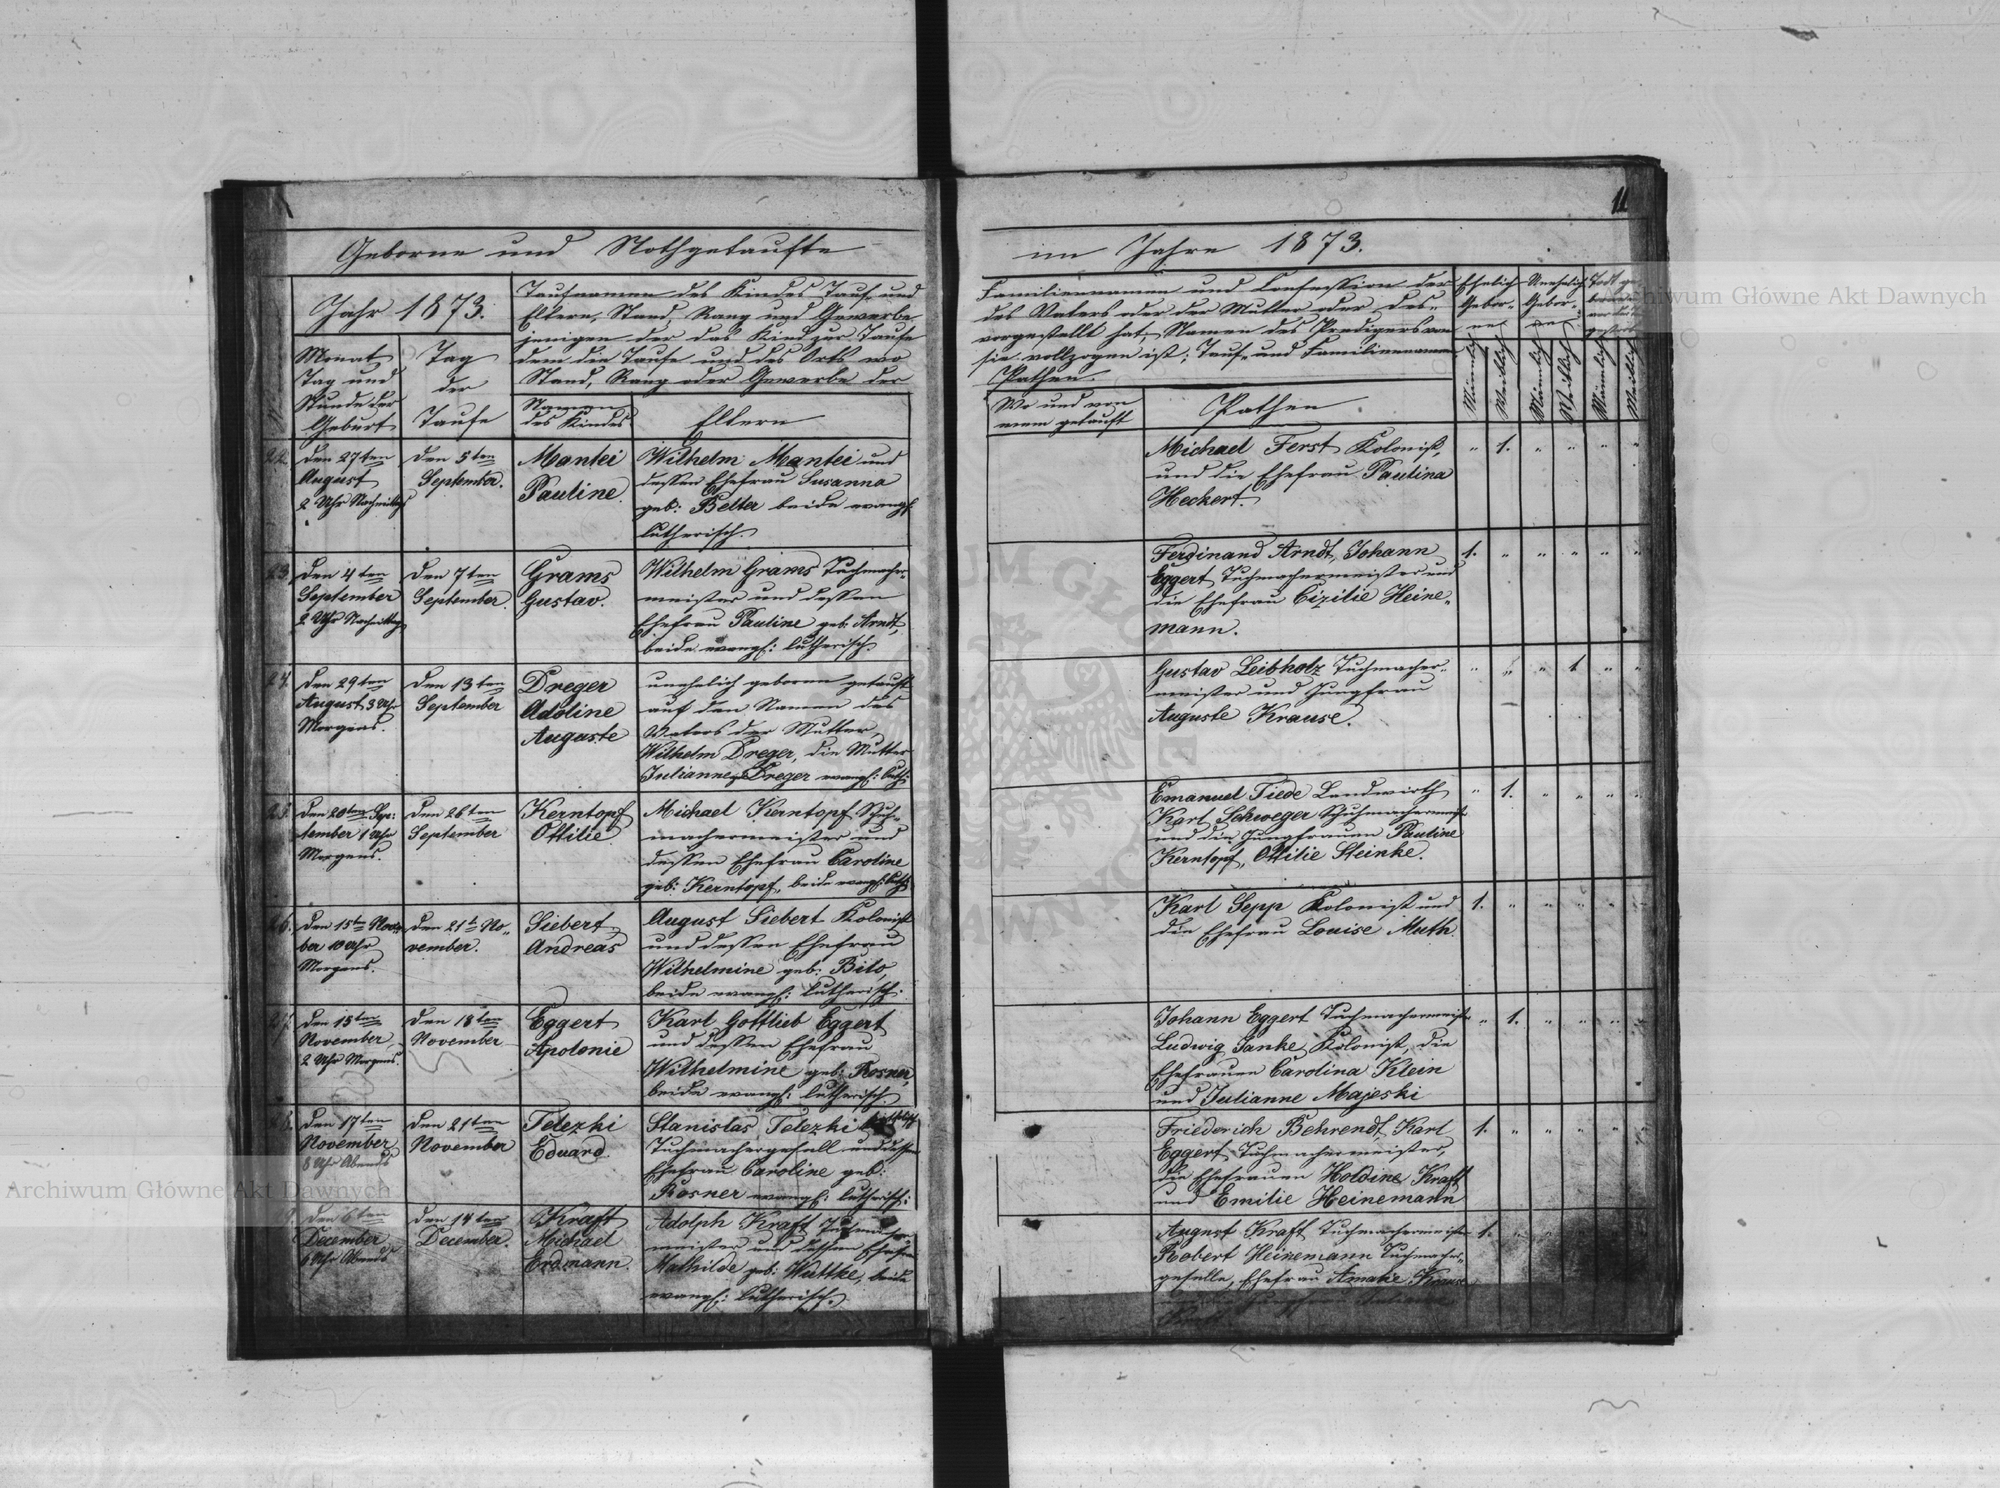 11
Geborne und Nothgetaufte
im Jahre 1873.
Jahr 1873.
Monat
Tag und
Stunde der
Geburt
Tag
der
Taufe
Taufnamen des Kindes Tauf und
Eltern, Stand, Rang und Gewerbe
jenigen der das Kind zur Taufe
dem die Taufe und des Orts wo
Stand, Rang oder Gewerbe der
Namen
des Kindes
Eltern
Familiennamen und Confession der
des Vaters oder der Mutter oder des-
vorgestellt hat, Namen des Predigers von
sie vollzogen ist; Tauf und Familiennamen
Pathen.
Wo und von
wem getauft
Pathen
Ehelich
Gebor-
ne
Unehelich
Gebor-
ne
Männlich
Weiblich
Männlich
Weiblich
Männlich
Weiblich
22.
den 27ten
August
2 Uhr Nachmittag
den 5ten
September.
Mantei
Pauline.
Wilhelm Mantei und
dessen Ehefrau Susanna
geb: Belter beide evangl.
lutherisch.
Michael Ferst Kolonist,
und die Ehefrau Paulina
Heckert.
" 1. " " " "
23.
den 4ten
September
2 Uhr Nachmittag
den 7ten
September.
Grams
Gustav.
Wilhelm Grams Tuchmacher-
meister und dessen
Ehefrau Pauline geb. Arndt,
beide evangl: lutherisch.
Ferdinand Arndt, Johann
Eggert Tuchmachermeister und
die Ehefrau Cizilie Heine-
mann.
1. " " " " "
24.
den 29ten
August, 3 Uhr
Morgens.
den 13ten
September
Dreger
Adoline
Auguste
unehelich geboren getauft
auf den Namen des
Vaters der Mutter,
Wilhelm Dreger, die Mutter
Julianne Dreger evangl: luth:
Gustav Leibholz Tuchmacher-
meister und Jungfrau
Auguste Krause.
" " " 1 " "
25.
den 20ten Sep:
tember 1 Uhr
Morgens.
den 26ten
September
Kerntopf
Ottilie.
Michael Kerntopf Schuh-
machermeister und
dessen Ehefrau Caroline
geb: Kerntopf, beide evangl: luth:
Emanuel Tiede Landwirth
Karl Schweger Schuhmachermeist
und die Jungfrauen Pauline
Kerntopf, Ottilie Steinke.
" 1. " " " "
26.
den 15ten Novem
ber 10 Uhr
Morgens.
den 21t No-
vember.
Siebert
Andreas
August Siebert Kolonist
und dessen Ehefrau
Wilhelmine geb: Bito,
beide evangl: lutherisch.
Karl Sepp Kolonist und
die Ehefrau Louise Muth.
1. " " " " "
27.
den 15ten
November
2 Uhr Morgens.
den 18ten
November
Eggert
Apolonie
Karl Gottlieb Eggert
und dessen Ehefrau
Wilhelmine geb: Rosner,
beide evangl: lutherisch
Johann Eggert Tuchmachermeist
Ludwig Janke Kolonist, die
Ehefrauen Carolina Klein
und Julianne Majeski
" 1. " " " "
28.
den 17ten
November
8 Uhr Abends
den 21ten
November
Telezki
Eduard
Stanislas Telezki
Tuchmachergesell und dessen
Ehefrau Caroline geb:
Rosner evangl: lutherisch:
Friederich Behrendt, Karl
Eggert Tuchmachermeister,
die Ehefrauen Holdine Kraft
und Emilie Heinemann
1. " " " " "
den 6ten
December
6 Uhr Abends
den 14ten
December.
Kraft
Michael
Erdmann.
Adolph Kraft Tuchmacher-
meister und dessen Ehefrau
Mathilde geb: Wuttke, beide
evangl: lutherisch.
August Kraft Tuchmachermeister
Robert Heinemann Tuchmacher-
geselle, Ehefrau Amalie
1.
Archiwum Główne Akt Dawnych
Archiwum Główne Akt Dawnych